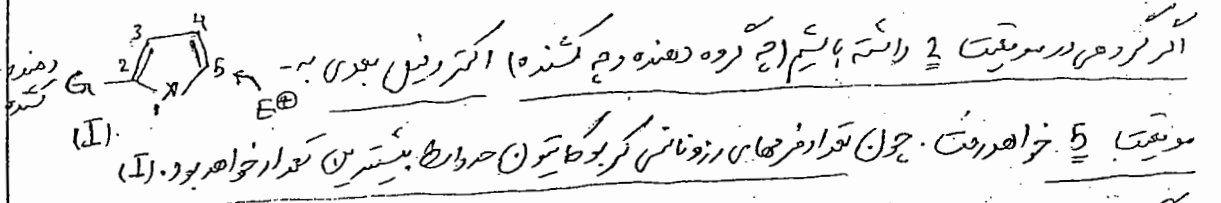 اگر گروهی در موقیت 2 داشته باشیم (چه گروه دهنده و چه کشنده) اکتروفیل بعدی به
موقیت 5 خواهد رفت. چون تعداد فرمهای رزونانسی کربوکاتیون حدواسط بیشترین تعداد خواهد بود. (I)
دهنده
کشنده
G 2 3 4 5 X 1 E⊕
(I)